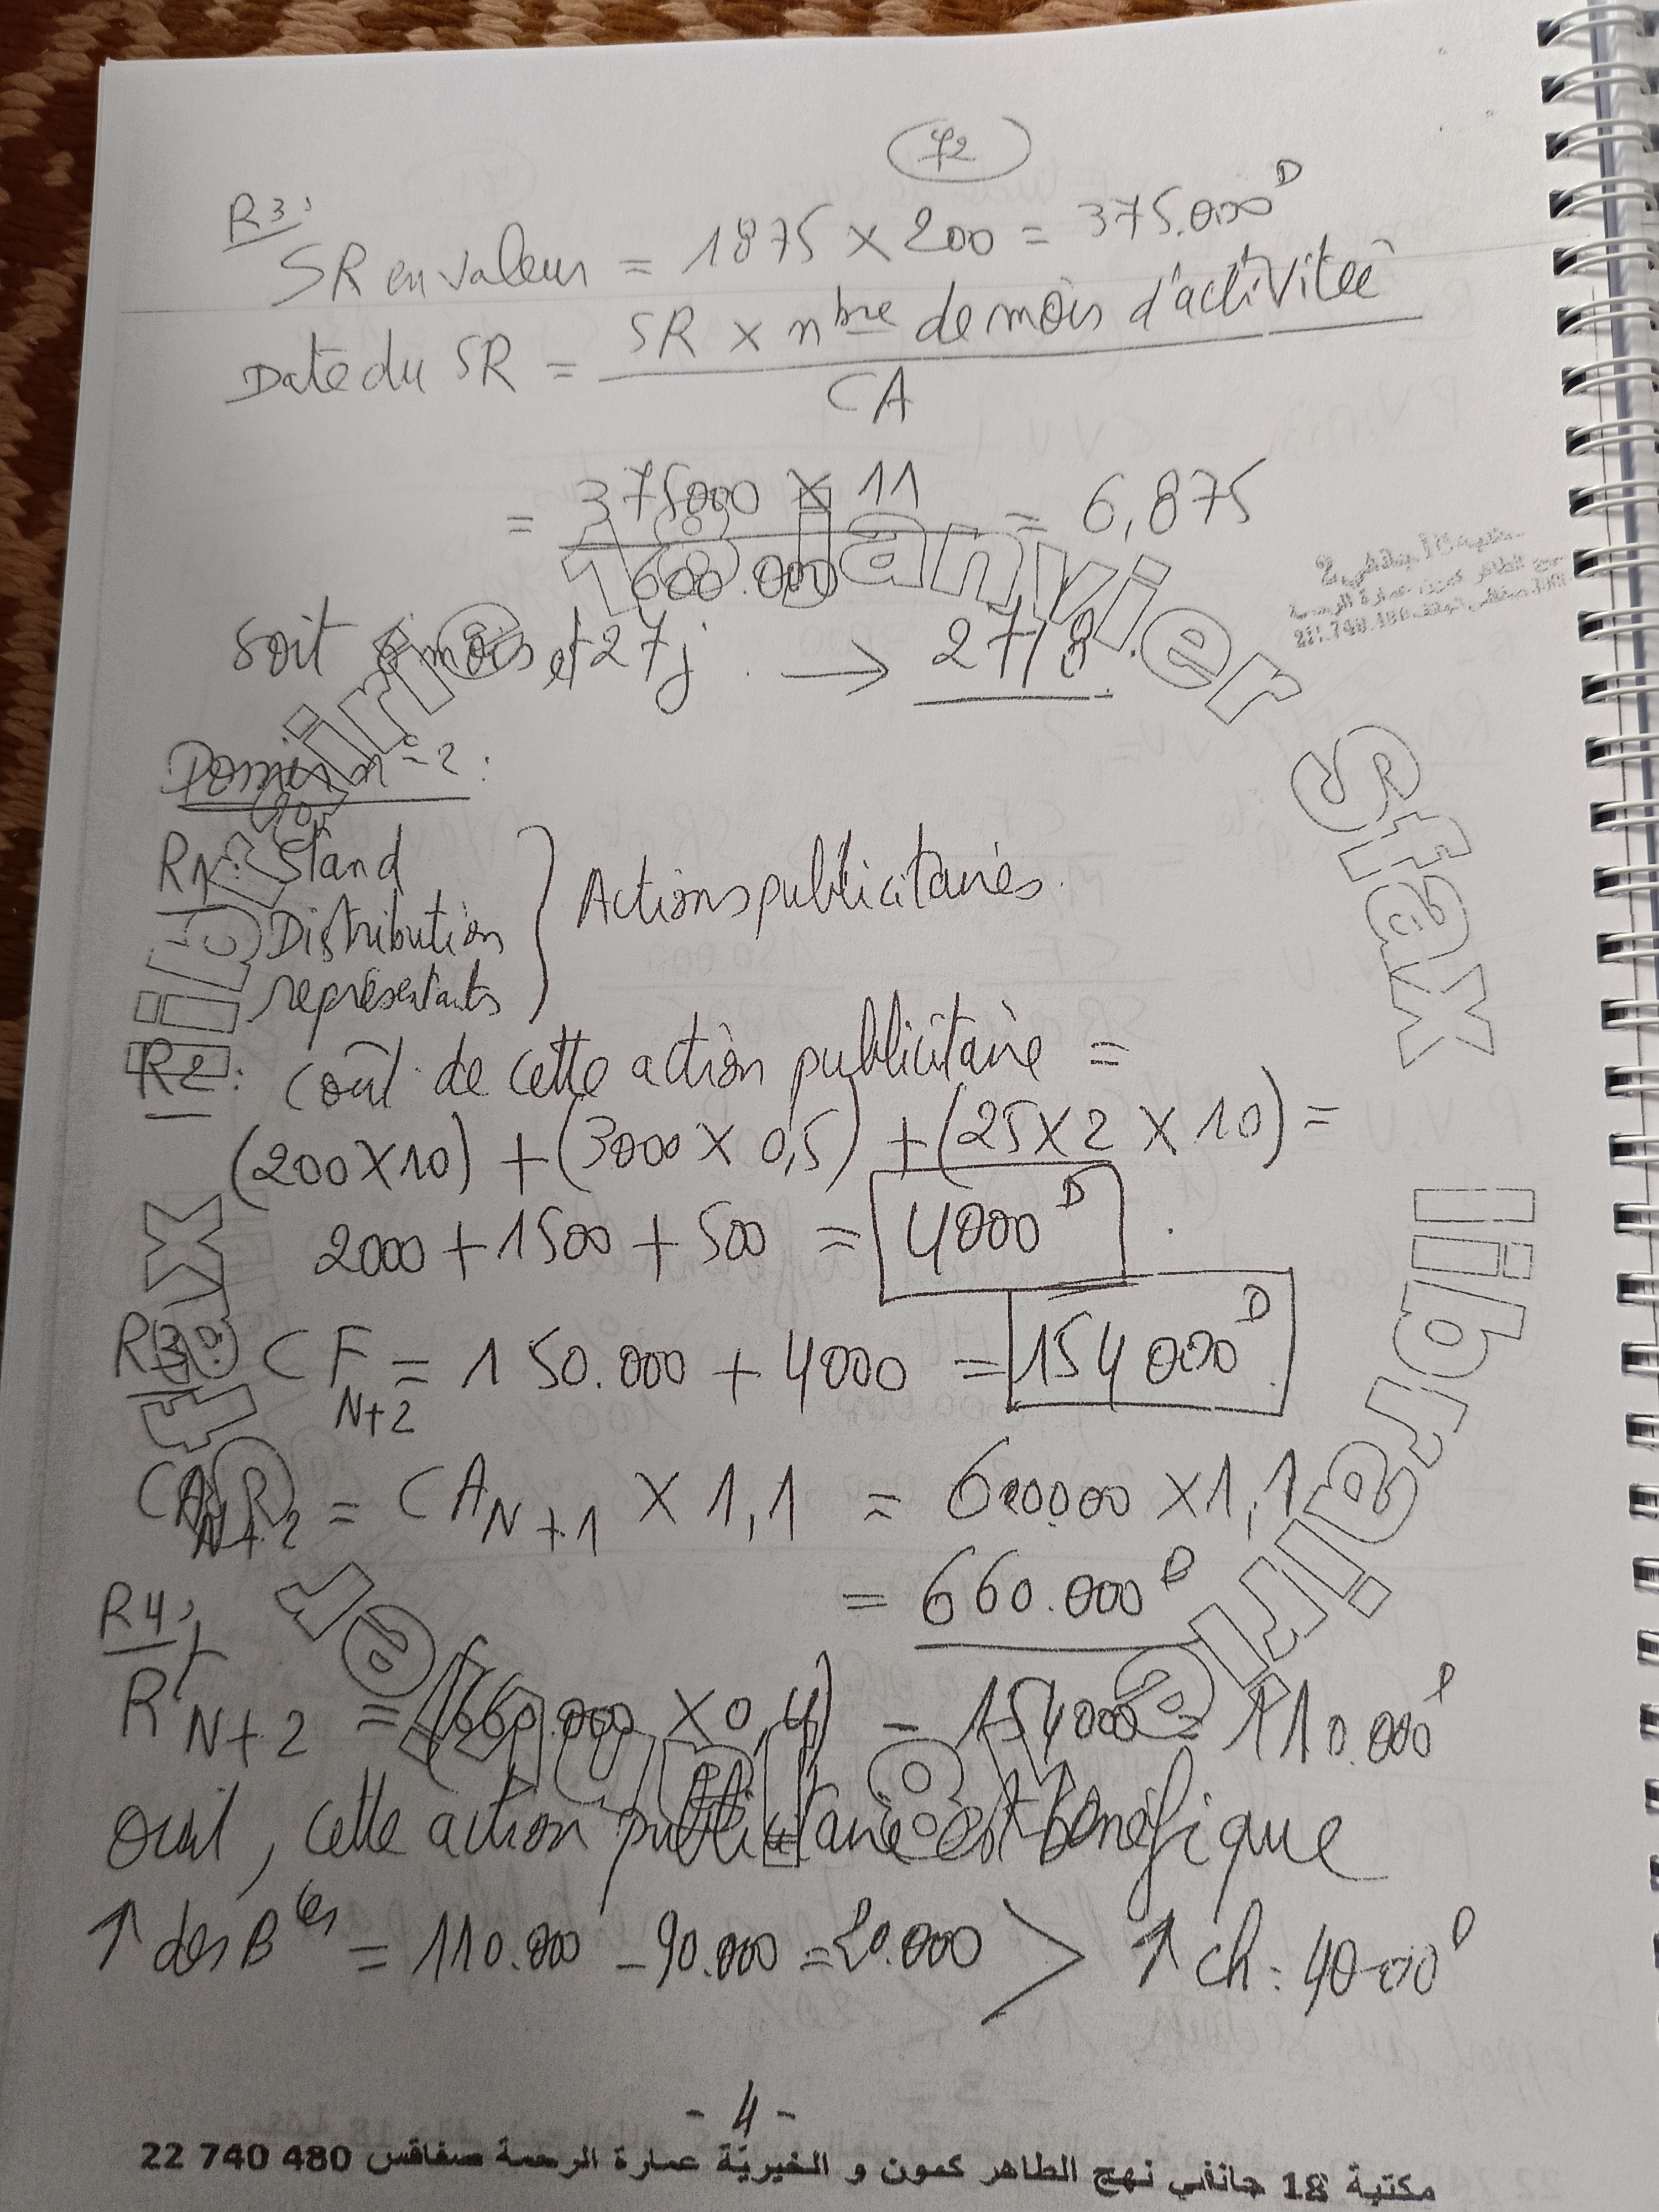 72
R3:
SR en valeur = 1875 × 200 = 375.000ᴰ
Date du SR = SR × nbre de mois d'activitée / CA
= 375000 × 11 / 600.000 = 6,875
soit 6 mois et 27j. → 27/8.
Dossier n°2:
R1: Stand
Distribution
représentants
} Actions publicitaires.
R2: Coût de cette action publicitaire =
(200×10) + (3000 × 0,5) + (25×2×10) =
2000 + 1500 + 500 = 4000ᴰ.
R3: CF N+2 = 150.000 + 4000 = 154 000ᴰ
CA N+2 = CA N+1 × 1,1 = 600000 × 1,1
= 660.000ᴰ
R4:
R N+2 = (660.000 × 0,4) - 154000 = 110.000ᴰ
oui, cette action publicitaire est bénéfique
↑ des Bces = 110.000 - 90.000 = 20.000 > ↑ ch: 4000ᴰ
- 4 -
مكتبة 18 جانفي نهج الطاهر كمون و الخيرية عمارة الرحمة صفاقس 22 740 480
librairie 18 janvier Sfax
librairie